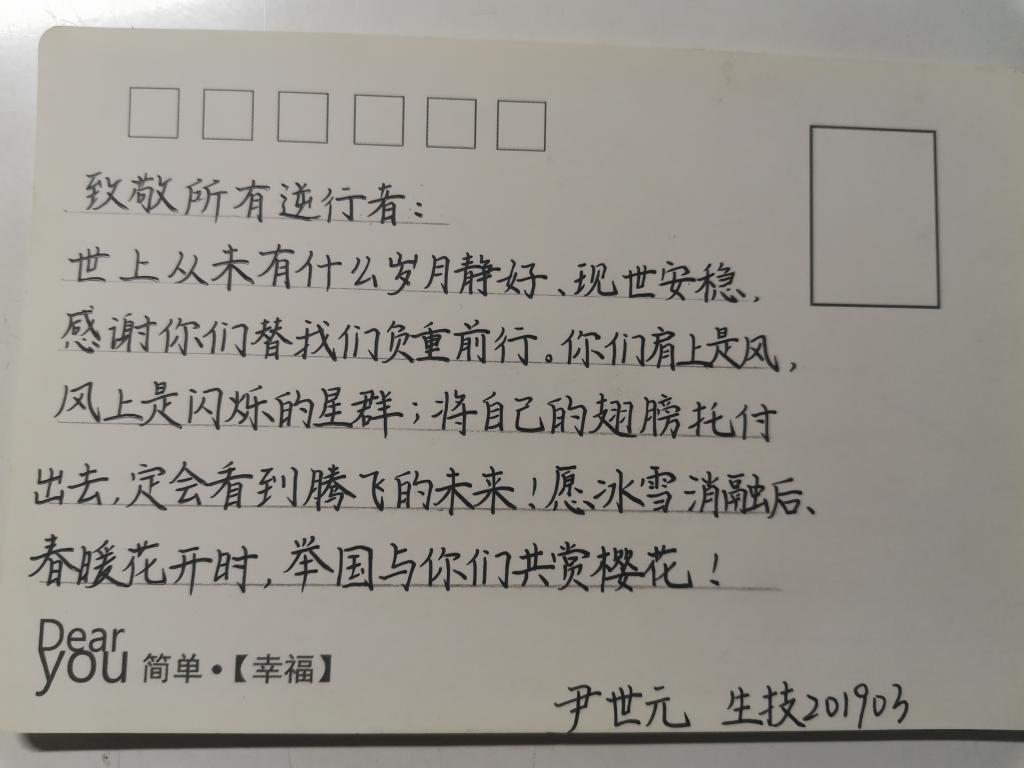 致敬所有逆行者：
世上从未有什么岁月静好、现世安稳，
感谢你们替我们负重前行。你们肩上是风，
风上是闪烁的星群；将自己的翅膀托付
出去，定会看到腾飞的未来！愿冰雪消融后、
春暖花开时，举国与你们共赏樱花！
Dear
you 简单·【幸福】
尹世元 生技201903